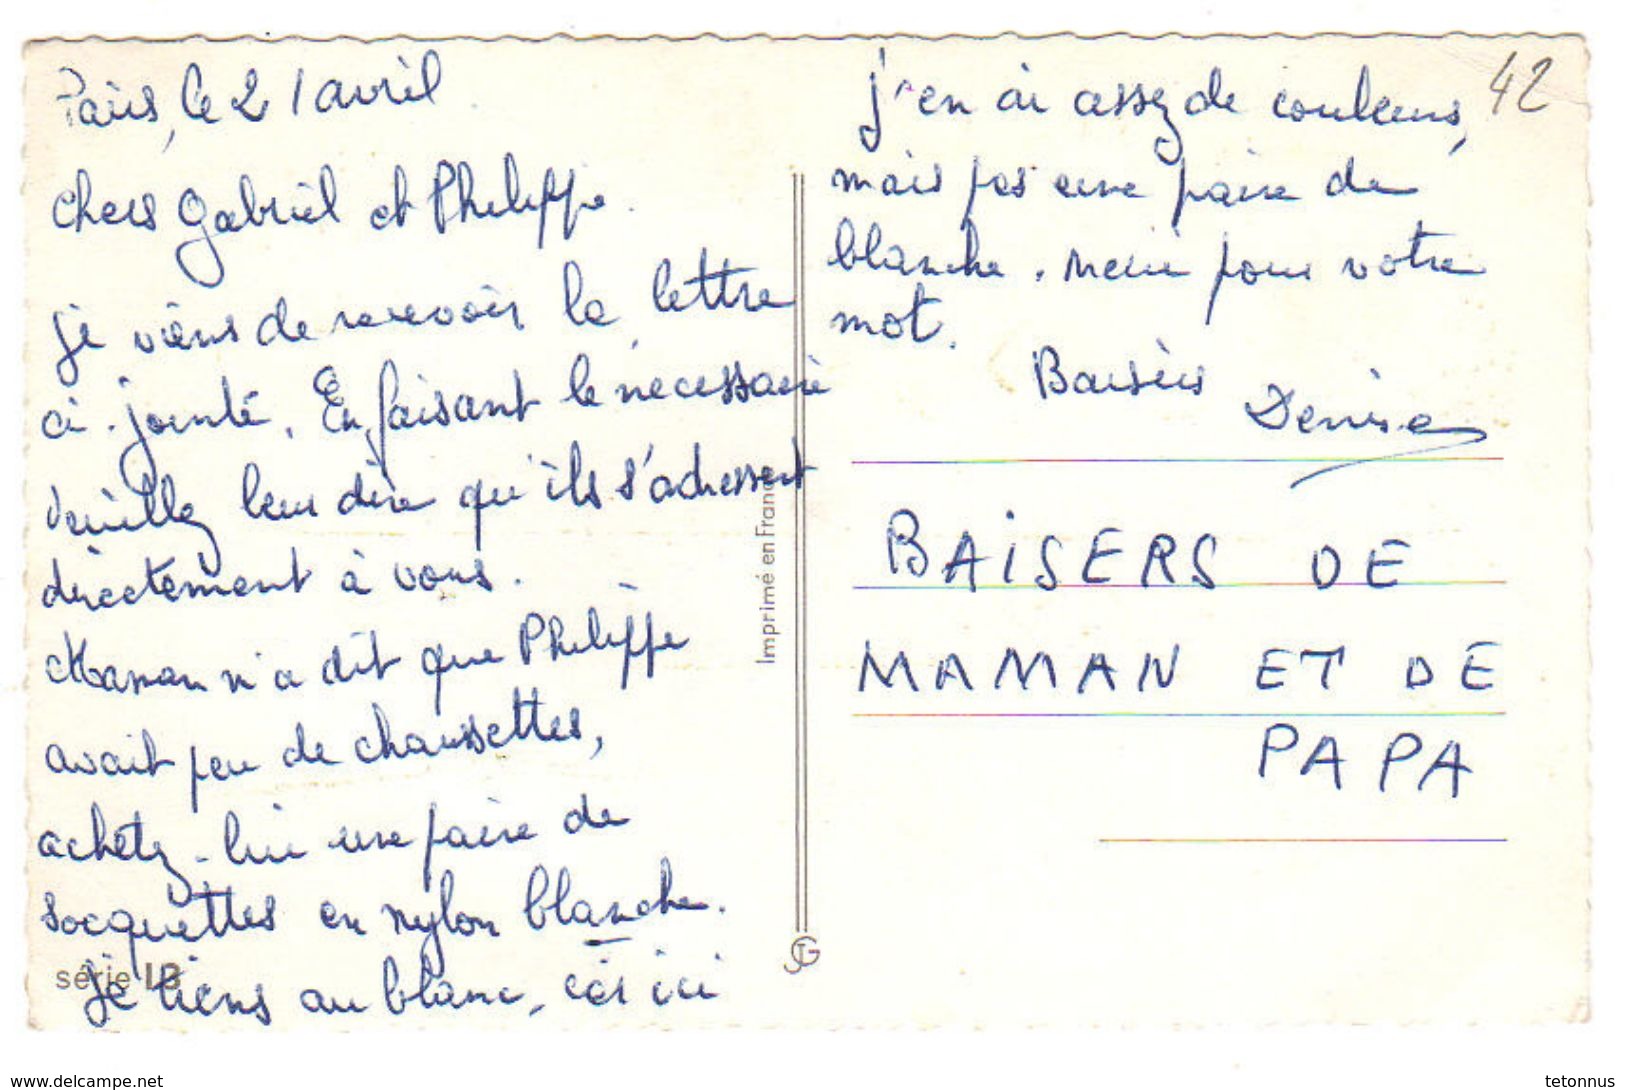 Paris, le 21 avril
chers Gabriel et Philippe.
je viens de recevoir la lettre
ci-jointe. En faisant le nécessaire
veuillez leur dire qu'ils s'adressent
directement à vous.
Maman m'a dit que Philippe
avait peu de chaussettes,
achetez-lui une paire de
socquettes en nylon blanche.
je tiens au blanc, car ici
série 13
Imprimé en France
JG
42
j'en ai assez de couleurs,
mais pas une paire de
blanche. Merci pour votre
mot.
Baisers
Denise
BAISERS DE
MAMAN ET DE
PAPA
www.delcampe.net
tetonnus